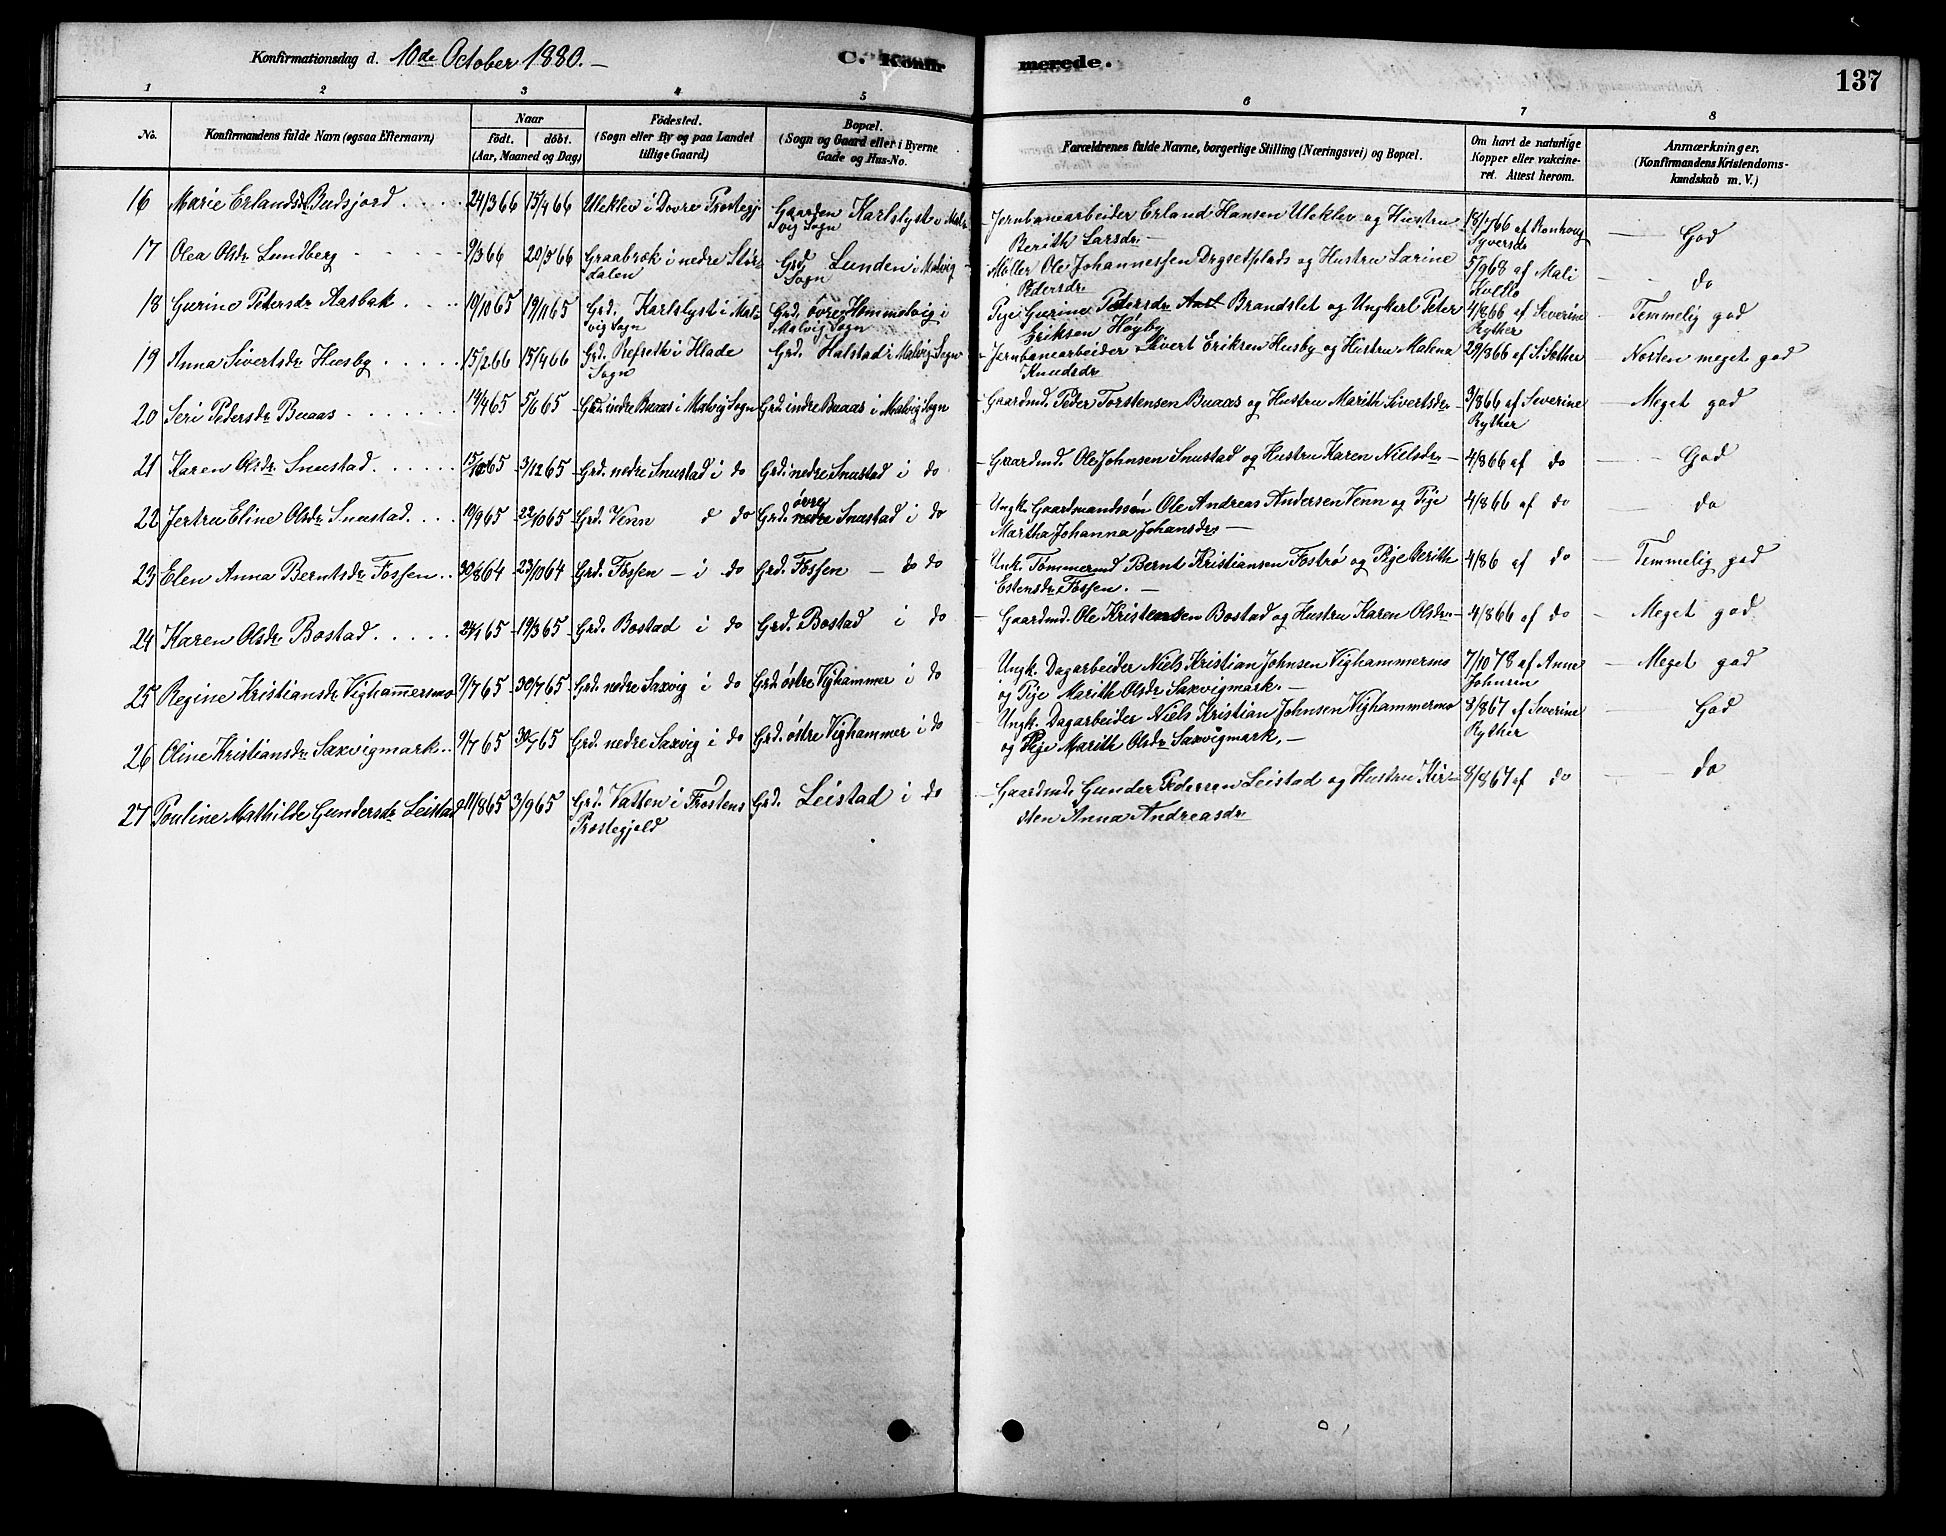 Konfirmationsdag d. 10de October 1880.—
C. Konfir
merede.
137
1 2 3 4 5 6 7 8
No.
Konfirmandens fulde Navn (ogsaa Efternavn)
Naar
födt. döbt.
(Aar, Maaned og Dag)
Födested.
(Sogn eller By og paa Landet
tillige Gaard)
Bopæl.
(Sogn og Gaard eller i Byerne
Gade og Hus-No.
Forældrenes fulde Navne, borgerlige Stilling (Næringsvei) og Bopæl.
Om havt de naturlige
Kopper eller vakcine-
ret. Attest herom.
Anmærkninger.
(Konfirmandens Kristendoms-
kundskab m. V.)
16 Marie Erlandsdr Budsjord 24/3 66 15/4 66 Uleklev i Dovre Prostegj. Gaarden Karlslyst i Mal-
vig Sogn
Jernbanearbeider Erland Hansen Uleklev og Hustru
Berith Larsdr.—
18/7 66 af Ronhoug
Syversdr
— God
17 Olea Olsdr Lundberg 9/3 66 20/5 66 Graabrok i nedre Stør-
dalen
Grd. Lunden i Malvig
Sogn
Møller Ole Johannessen Drgsetplads og Hustru Larine
Pedersdr.
5/9 68 af Mali
Kollo
— do
18 Gurine Petersdr Aasbak 10/10 65 19/11 65 Grd. Karlslyst i Mal-
vig Sogn
Grd. övre Hommelvig i
Malvig Sogn
Pige Gurine Pedersdr Aast Brandslet og Ungkarl Peter
Eriksen Høyby
4/8 66 af Severine
Ryther
— Temmelig god
19 Anna Sivertsdr Husby 15/2 66 15/4 66 Grd. Refseth i Hlade
Sogn
Grd. Halstad i Malvig Sogn
Jernbanearbeider Sivert Eriksen Husby og Hustru Malena
Knudsdr.
29/8 66 af S. Sæther
— Næsten meget god
20 Seri Pedersdr Buaas 14/4 65 5/6 65 Grd. indre Buaas i Malvig Sogn Grd. indre Buaas i Malvig Sogn
— Gaardmd. Peder Torstensen Buaas og Hustru Marith Sivertsdr.—
3/8 66 af Severine
Ryther
— Meget god
21 Karen Olsdr Snustad 15/10 65 3/12 65 Grd. nedre Snustad i do Grd. nedre Snustad i do
— Gaardmd. Ole Johnsen Snustad og Hustru Karen Nielsdr.—
4/8 66 af do
— God
22 Jertru Eline Olsdr Snustad 10/9 65 22/10 65 Grd. Venn d do Grd. övre nedre Snustad i do
— Ungk. Gaardmandssön Ole Andreas Andersen Venn og Pige
Martha Johanna Johansdr.—
4/8 66 af do
— do
23 Elen Anna Berntsdr Fossen 30/8 64 23/10 64 Grd. Fossen — i do Grd. Fossen — do do
Unk. Tömmermd Bernt Kristiansen Fostrø og Pige Berithe
Estensdr. Fossen.—
4/86 af do
— Temmelig god
24 Karen Olsdr Bostad 24/1 65 19/3 65 Grd. Bostad i do Grd. Bostad i do
— Gaardmd. Ole Kristensen Bostad og Hustru Karen Olsdr.—
4/8 66 af do
— Meget god
25 Regine Kristiansdr Vighammersmo 9/7 65 30/7 65 Grd. nedre Saxvig i do Grd. østre Vighammer i do
Ungk. Dagarbeider Niels Kristian Johnsen Vighammermo
og Pige Marith Olsdr Saxvigmark.—
7/10 78 af Anne
Johnsen
— Meget god
26 Oline Kristiansdr Saxvigmark 9/7 65 30/7 65 Grd. nedre Saxvig i do Grd. østre Vighammer i do
Ungk. Dagarbeider Niels Kristian Johnsen Vighammermo
og Pige Marith Olsdr Saxvigmark.—
8/8 67 af Severine
Ryther
— God
27 Pouline Mathilde Gundersdr Leistad 11/8 65 3/9 65 Grd. Vatten i Frostens
Prostegjeld
Grd. Leistad i do
— Gaardmd. Gunder Pedersen Leistad og Hustru Kir-
sten Anna Andreasdr
8/8 67 af do
— do